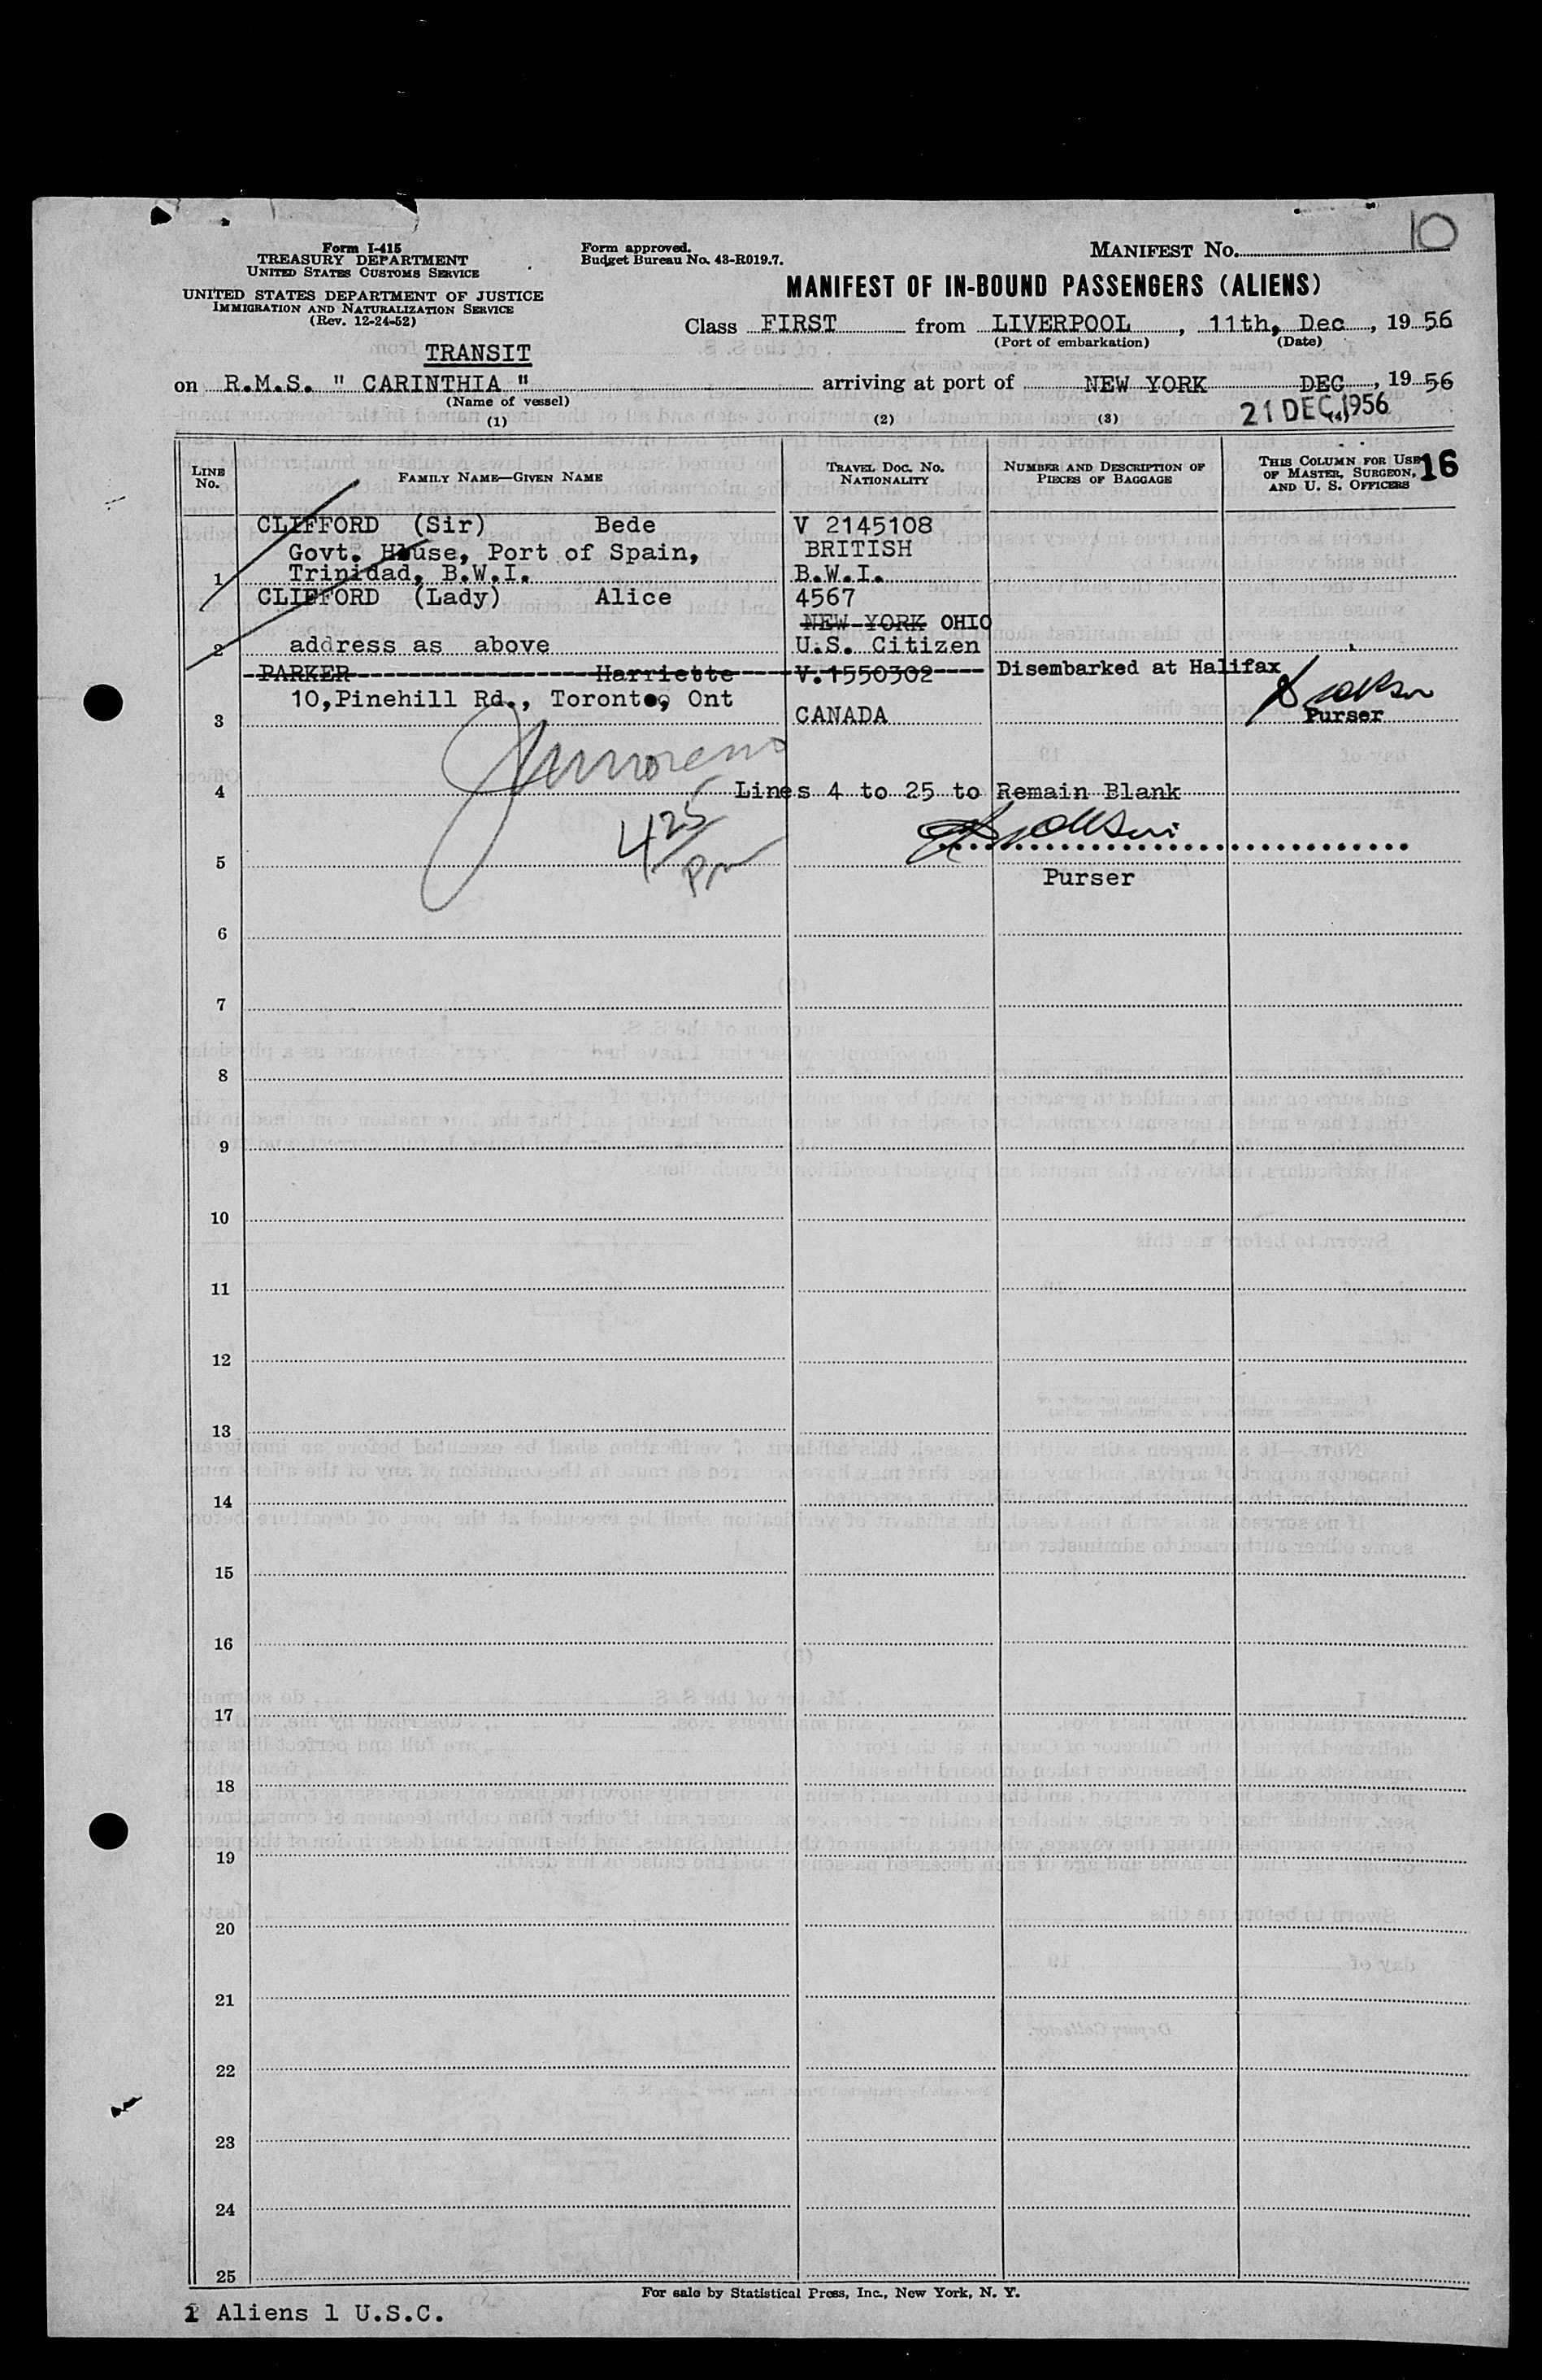 Form I-415
TREASURY DEPARTMENT
UNITED STATES CUSTOMS SERVICE
UNITED STATES DEPARTMENT OF JUSTICE
IMMIGRATION AND NATURALIZATION SERVICE
(Rev. 12-24-52)
Form approved.
Budget Bureau No. 43-R019.7.
MANIFEST No. 10
MANIFEST OF IN-BOUND PASSENGERS (ALIENS)
Class FIRST from LIVERPOOL, 11th, Dec, 19 56
(Port of embarkation) (Date)
TRANSIT
on R.M.S. " CARINTHIA " arriving at port of NEW YORK DEC, 19 56
(Name of vessel)
21 DEC 1956
(1) (2) (3) (4)
LINE No. FAMILY NAME—GIVEN NAME TRAVEL DOC. NO. NATIONALITY NUMBER AND DESCRIPTION OF PIECES OF BAGGAGE THIS COLUMN FOR USE OF MASTER, SURGEON, AND U. S. OFFICERS 16
CLIFFORD (Sir) Bede V 2145108
Govt. House, Port of Spain, BRITISH
1 Trinidad, B.W.I. B.W.I.
CLIFFORD (Lady) Alice 4567
NEW YORK OHIO
2 address as above U.S. Citizen
PARKER Harriette V.1550302 Disembarked at Halifax
10,Pinehill Rd., Toronto, Ont
3 CANADA Purser
4 Lines 4 to 25 to Remain Blank
4 25 pm
5
Purser
6
7
8
9
10
11
12
13
14
15
16
17
18
19
20
21
22
23
24
25
For sale by Statistical Press, Inc., New York, N. Y.
1 Aliens 1 U.S.C.